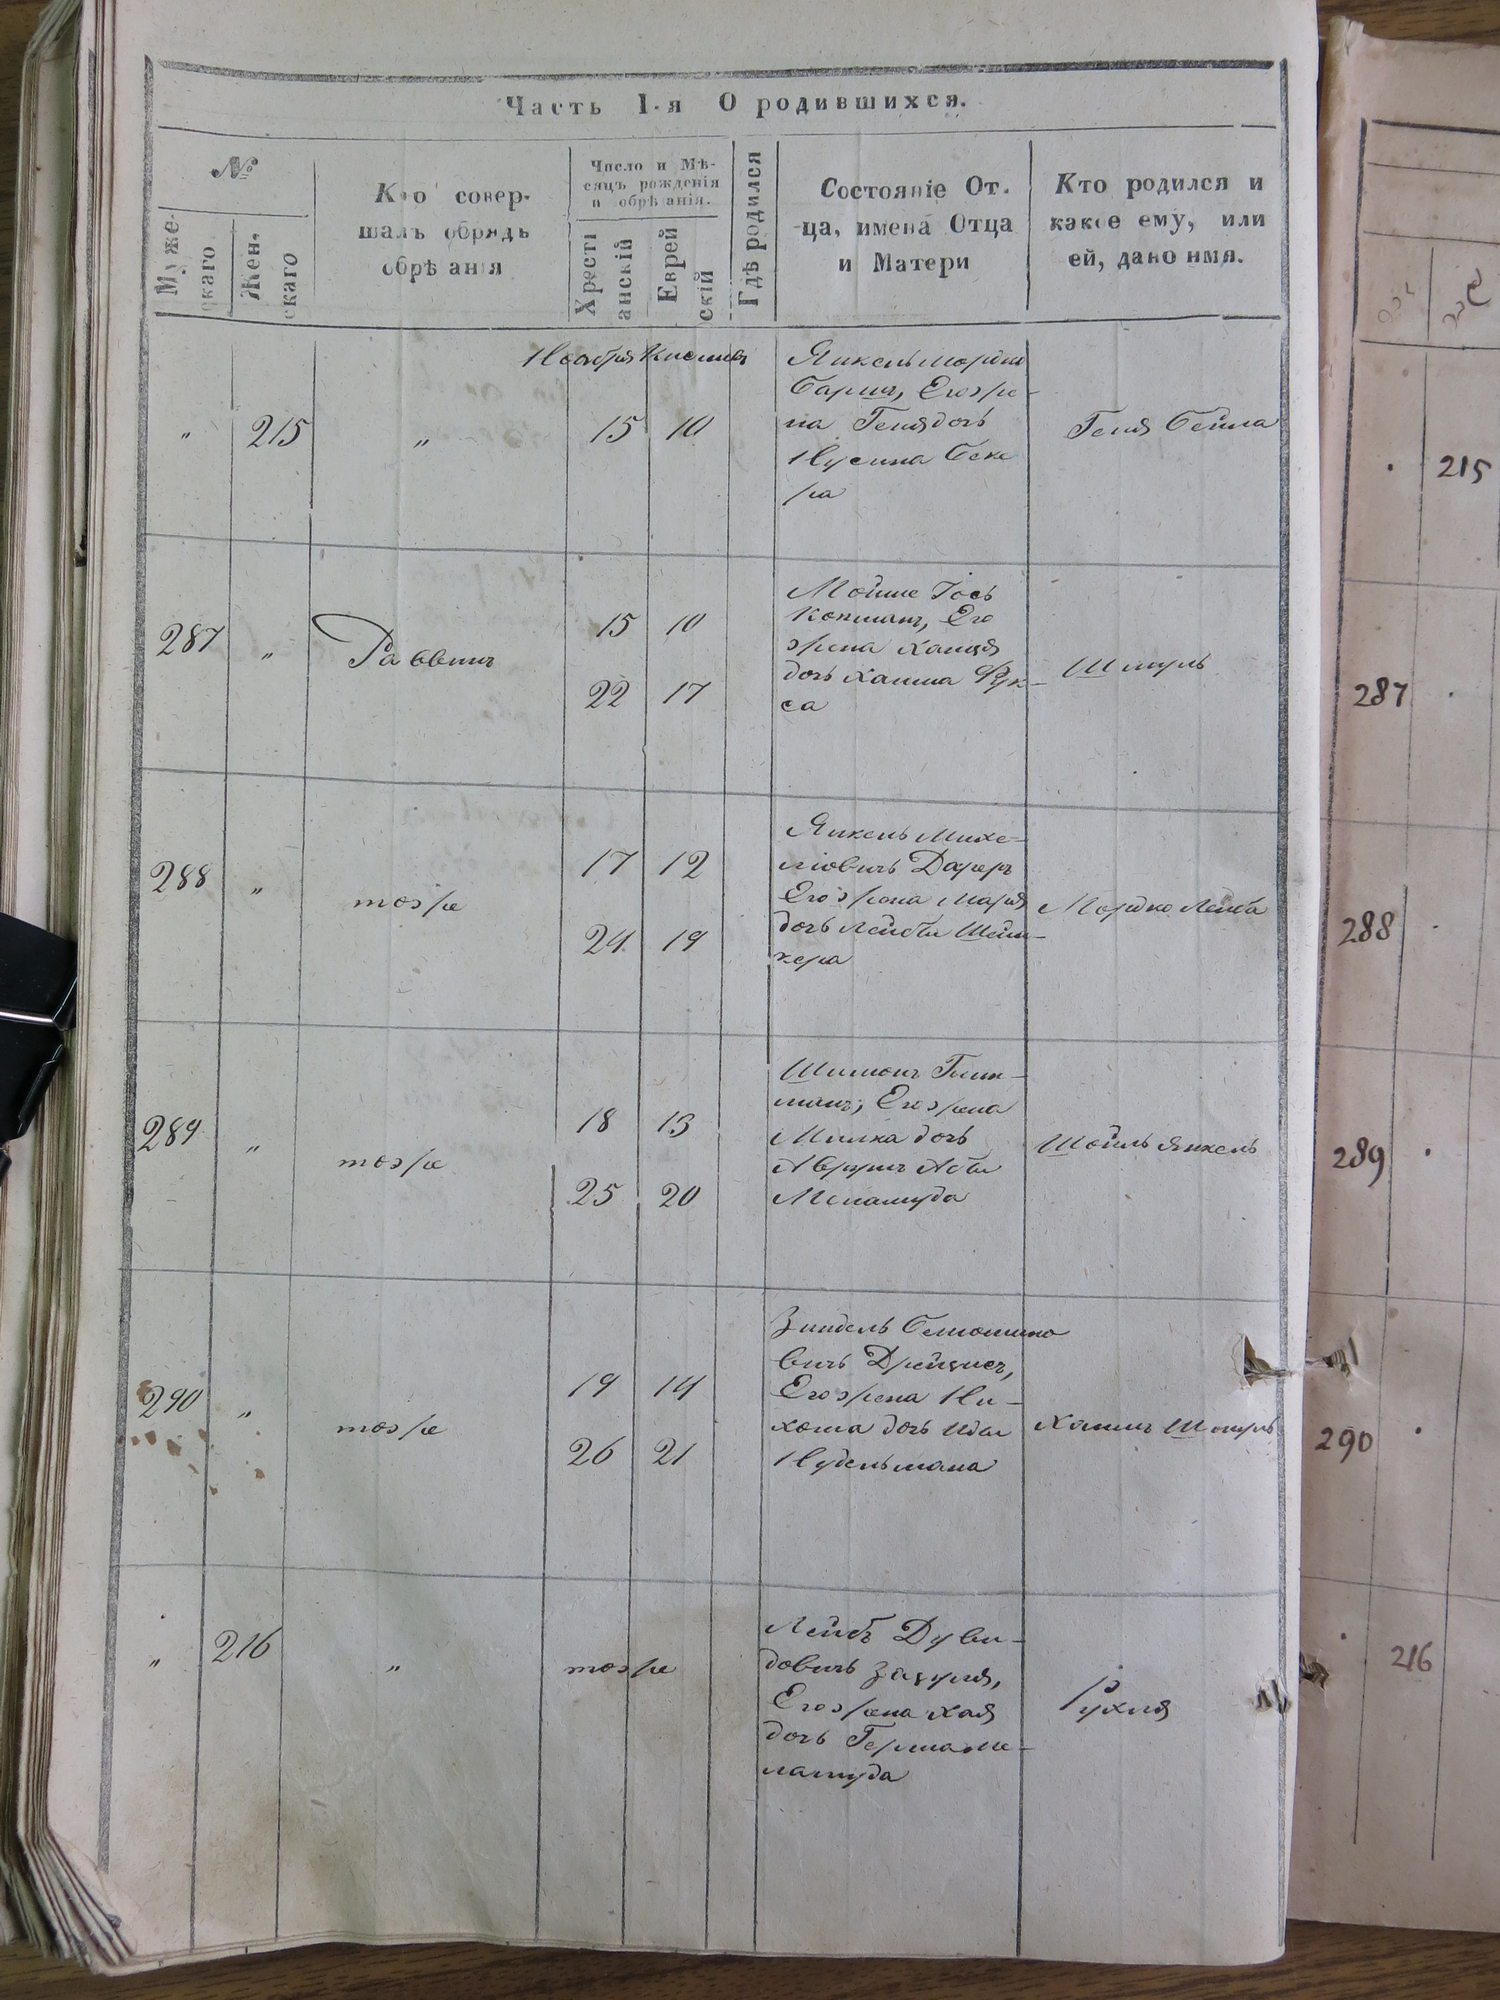 Часть I-я О родившихся.
№
Муже-
скаго
Жен-
скаго
Кто совер-
шалъ обрядъ
обрѣзанія
Число и Мѣ-
сяцъ рожденія
и обрѣзанія.
Хрісті
анскій
Еврей
скій
Гдѣ родился
Состояніе От-
ца, имена Отца
и Матери
Кто родился и
какое ему, или
ей, дано имя.
Ноября Кисливъ
" 215 " 15 10
Янкель Мордко
Барич, Его же-
на Геня дочь
Нусина
ра
Геня Бейла
287 " Раввинъ
15 10
22 17
Мойше Іось
Копманъ, Его
жена Хаиця
дочь Хаима Фук-
са
Шмуль
288 " тоже
17 12
24 19
Янкель Михе-
ліовичь
Его жена Маря
дочь Лейбы Шейн-
кера
Мордко Лейба
289 " тоже
18 13
25 20
Шимонъ Глик-
манъ, Его жена
Милка дочь
Аврумъ Абы
Меламуда
Шойль Янкель
290 " тоже
19 14
26 21
Зиндель
вичь
Его жена Не-
хома дочь Иды
Нудельмана
Хаимъ Шмуль
" 216 " тоже
Лейбъ Дуви-
довичь Зацуля,
Его жена Хая
дочь Герша Ме-
ламуда
Рухля
215
287
288
289
290
216